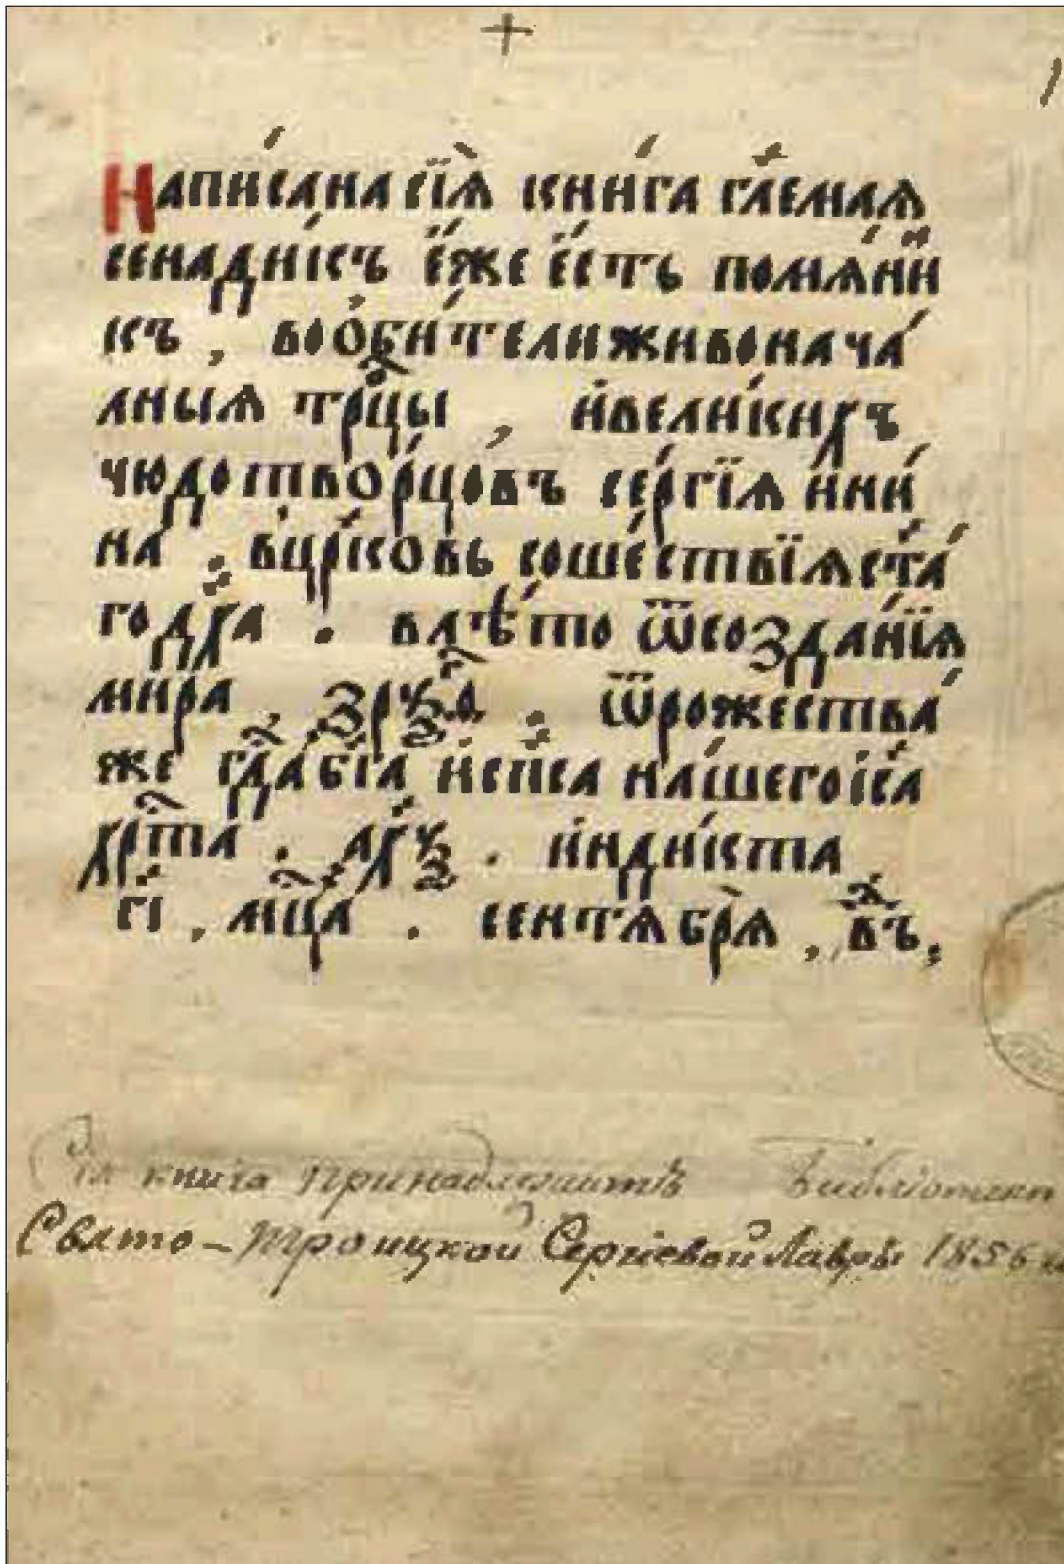 +
1
Напи́сана сїѧ̀ кни́га гл҃емаѧ
сенадни́къ є҆́же є҆́сть помѧ́нни
къ , во ѻ҆би́тели живонача́
лныѧ трⷪ҇цы , и҆ вели́кихъ
чюдотво́рцовъ се́ргїѧ и ни́
на . в цр҃ковь соше́ствїѧ ст҃а́
го дх҃а . в лѣ́то ѿ созда́нїѧ
мира , ҂зрч҃зго . ѿ рожества́
же гдⷭ҇а бг҃а и҆ сп҃са на́шего і҆с҃а
хрⷭ҇та . ҂ах҃чз . и҆нди́кта
г҃і , мцⷭ҇а . сентѧбрѧ̀ , в҃ дъ ,
Сія книга принадлежитъ Библіотекѣ
Свято-Троицкой Сергіевой Лавры 1856